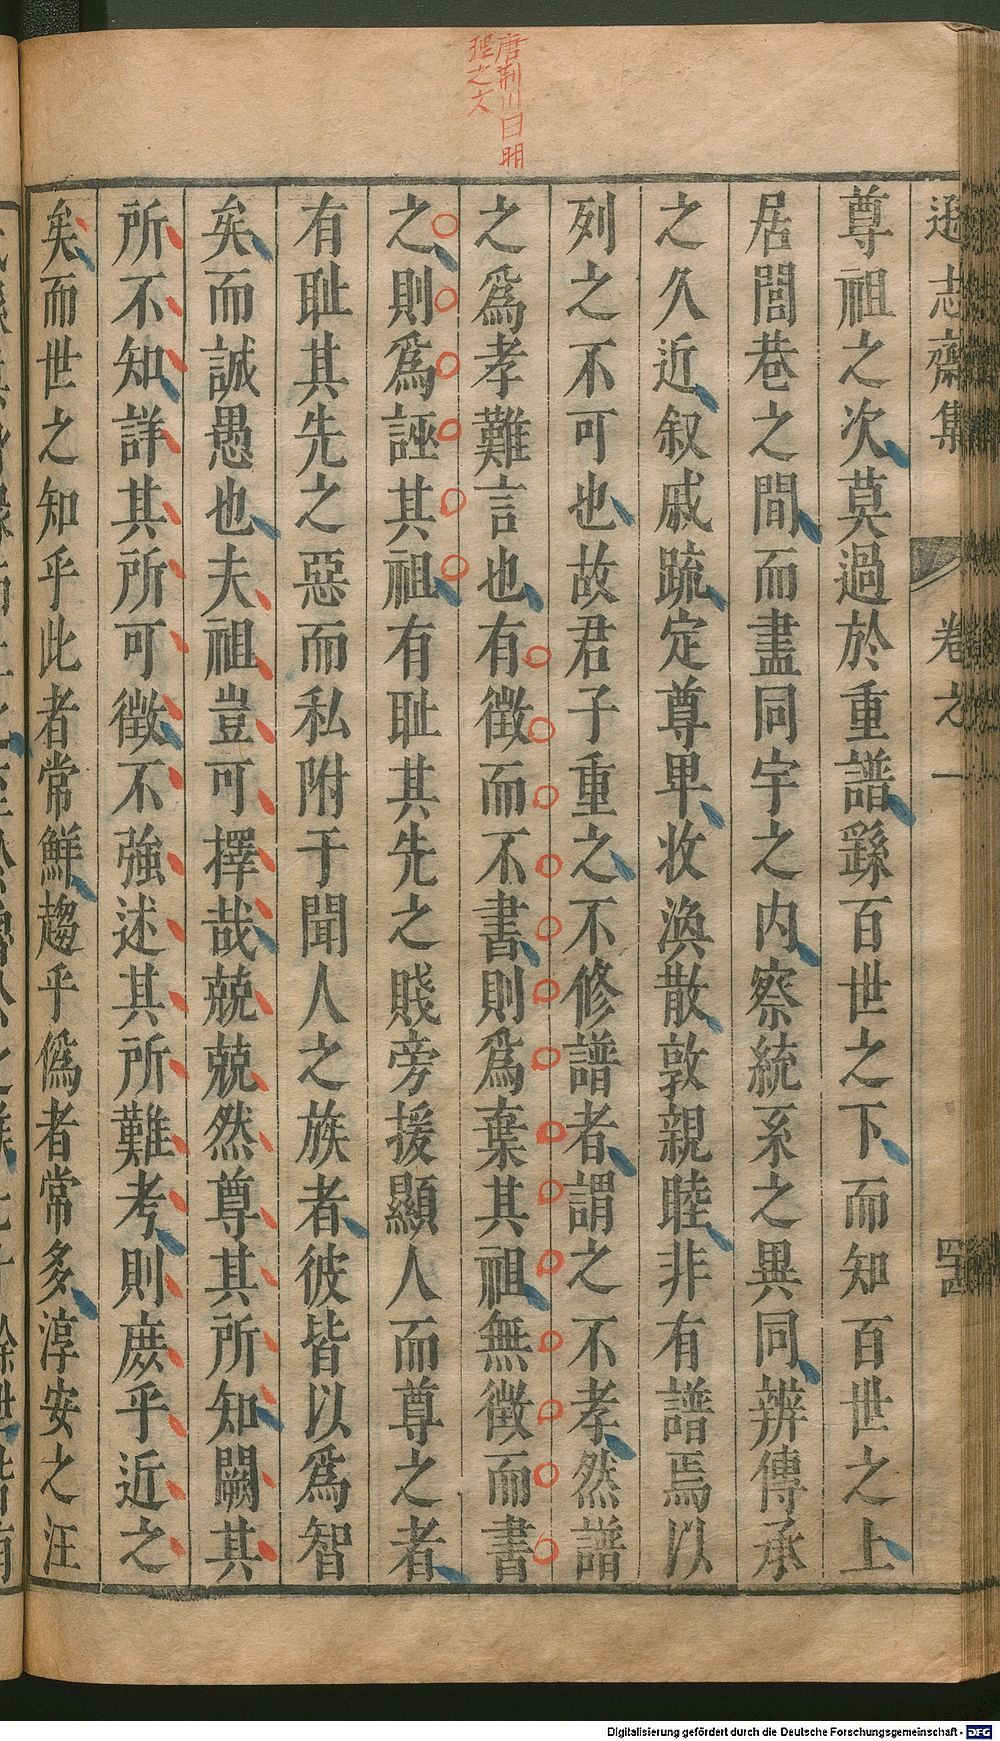 唐荆川曰明
理之文
遜志齋集 卷之一 四
尊祖之次莫過於重譜繇百世之下而知百世之上
居閭巷之間而盡同宇之内察統系之異同辨傳承
之久近叙戚疏定尊卑收渙散敦親睦非有譜焉以
列之不可也故君子重之不修譜者謂之不孝然譜
之爲孝難言也有徵而不書則爲棄其祖無徵而書
之則爲誣其祖有耻其先之賤旁援顯人而尊之者
有耻其先之惡而私附于聞人之族者彼皆以爲智
矣而誠愚也夫祖豈可擇哉兢兢然尊其所知闕其
所不知詳其所可徵不強述其所難考則庶乎近之
矣而世之知乎此者常鮮趨乎僞者常多淳安之汪
Digitalisierung gefördert durch die Deutsche Forschungsgemeinschaft - DFG